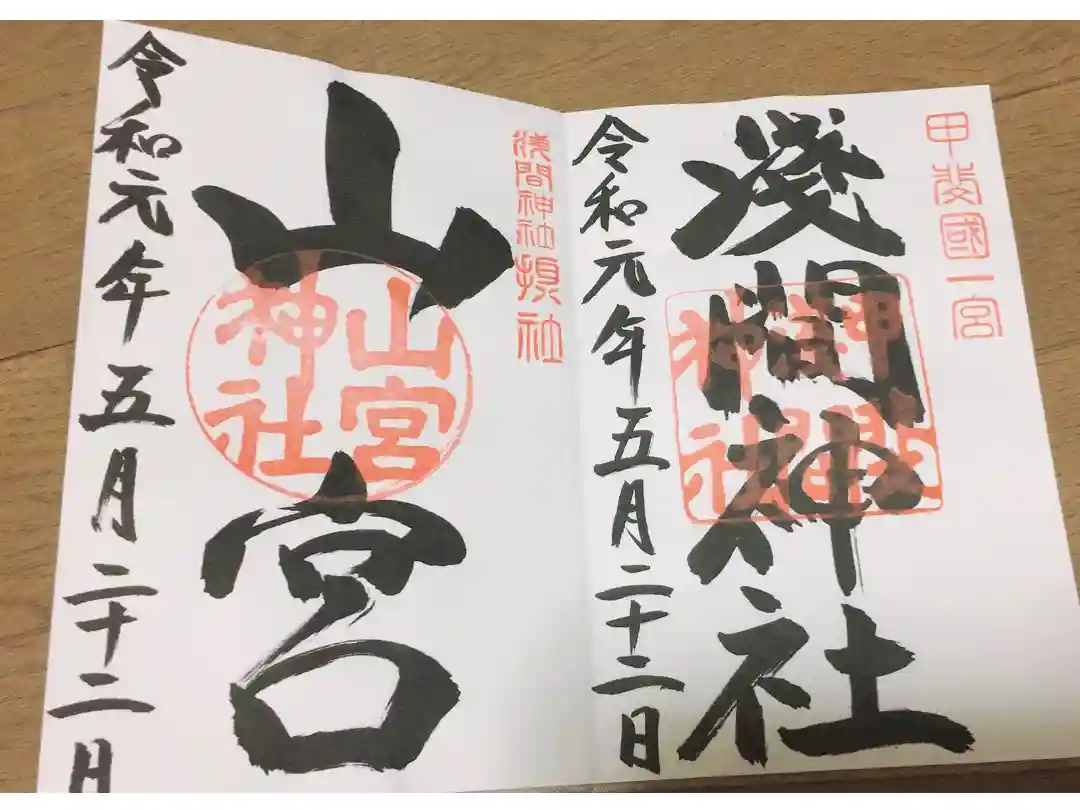 甲斐國一宮
淺間神社
淺間神社
令和元年五月二十二日
淺間神社摂社
山宮
山宮
神社
令和元年五月二十二日